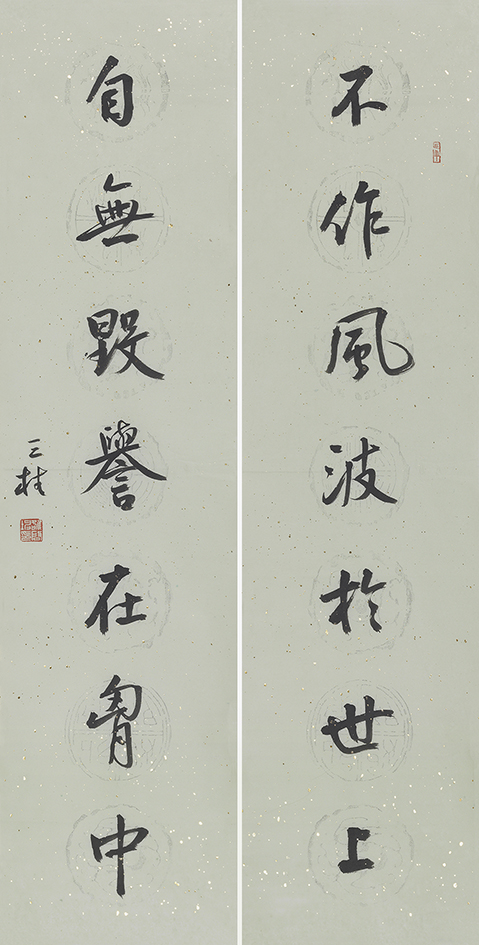 不作風波於世上
自無毀譽在胷中
三桂